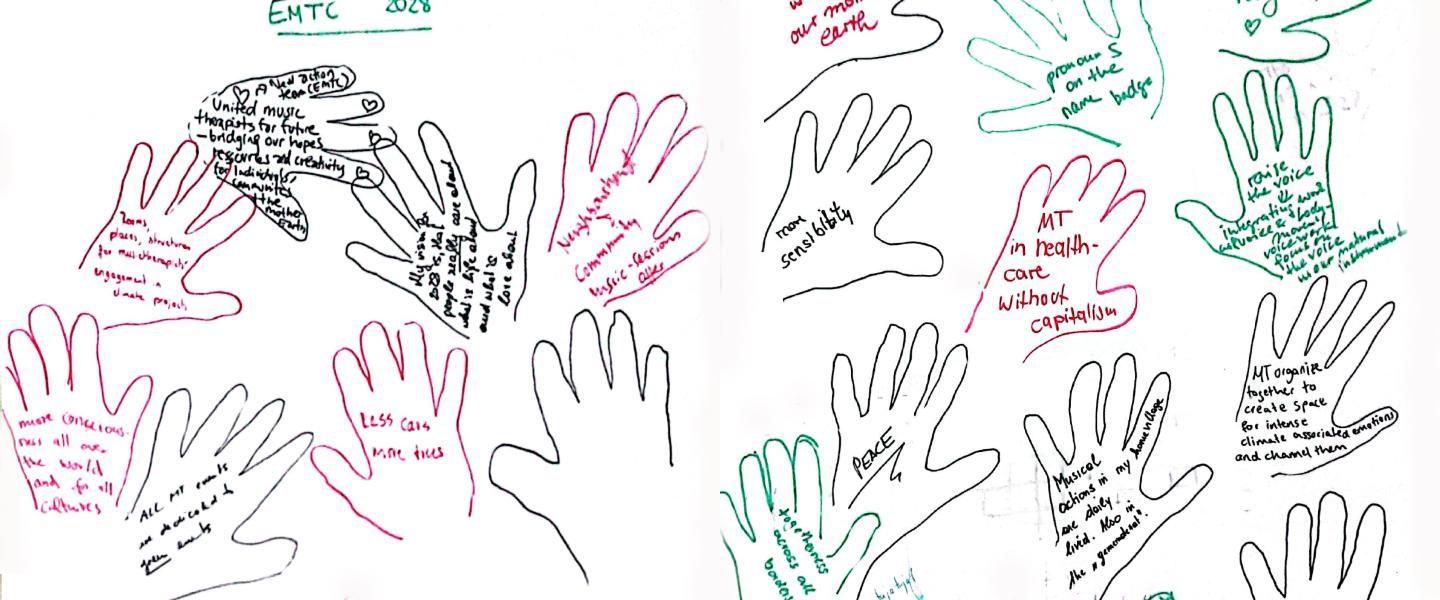 EMTC 2028
A New action
team (EMTC)
United music
therapists for future
– bridging our hopes
resources and creativity
for individuals,
communities
the mother
Earth
Rooms,
places, structures
for musictherapists'
engagement in
climate projects
My vision for
2028 is, that
people really care about
what is life about
and what is
love about
Community
music-sessions
after
more conscious-
ness all over
the world
and for all
cultures
ALL MT events
are dedicated to
green events
Less cars
more trees
our mother
earth
pronouns
on the
name badge
more
sensibility
MT
in health-
care
without
capitalism
raise
the voice
&
integrative work
voice & body-
movement
voicework
focus on
the voice
as our natural
instrument
PEACE
togetherness
across all
borders
Musical
actions in my homevillage
are daily
lived. Also in
the
MT organize
together to
create space
for intense
climate associated emotions
and channel them